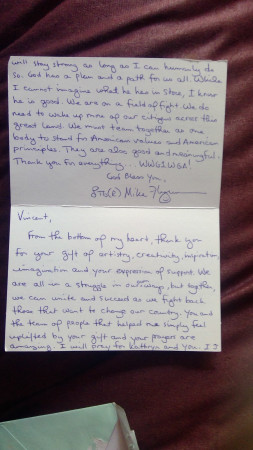 will stay strong as long as I can humanly do
so. God has a plan and a path for us all. While
I cannot imagine what he has in store, I know
he is good. We are on a field of fight. We do
need to wake up more of our citizens across this
great land. We must team together as one
body to stand for American values and American
principles. They are also good and meaningful.
Thank you for everything... WWG1WGA!
God Bless You,
Mike
Vincent,
From the bottom of my heart, thank you
for your gift of artistry, creativity, inspiration,
imagination and your expression of support. We
are all in a struggle in our ways, but together,
we can unite and succeed as we fight back
those that want to change our country. You and
the team of people that helped me simply feel
uplifted by your gift and your prayers are
amazing. I will pray for Kathryn and you. I I